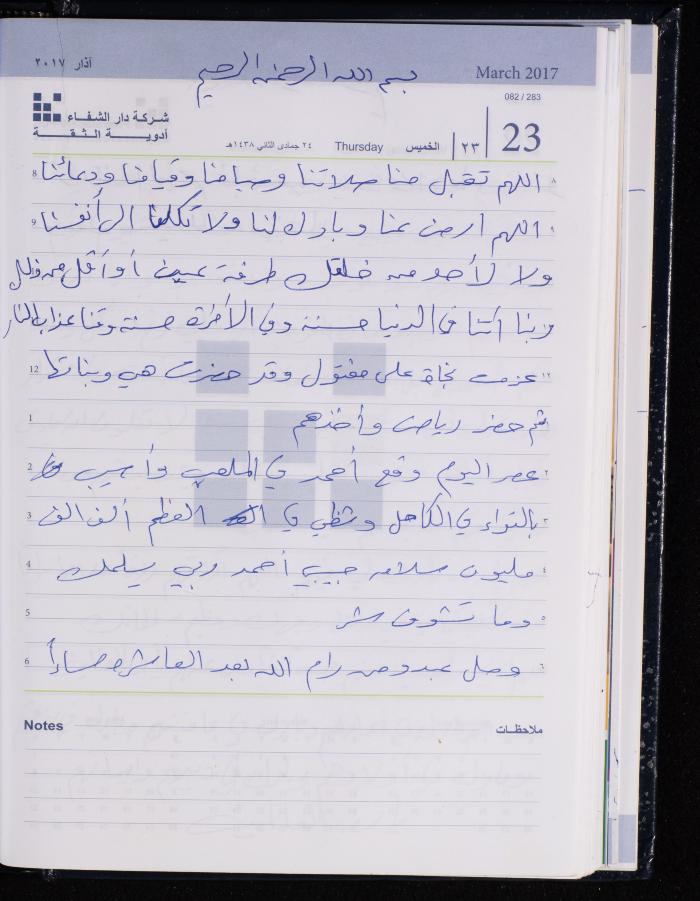 آذار ٢٠١٧
بسم الله الرحمن الرحيم
March 2017
082 / 283
شركة دار الشفاء
أدوية الثقة
٢٤ جمادى الثاني ١٤٣٨هـ
Thursday
الخميس
٢٣
23
اللهم تقبل منا صلاتنا وصيامنا وقيامنا ودعائنا 8
اللهم ارض عنا وبارك لنا ولا تكلنا الى أنفسنا 9
ولا لأحد من خلقك طرفة عين أو أقل من ذلك
ربنا آتنا في الدنيا حسنة وفي الآخرة حسنة وقنا عذاب النار
عزمت نجاة على مفتول وقد حضرت هي وبناتها 12
ثم حضر رياض وأخذهم 1
عصر اليوم وقع أحمد في الملعب وأصيب 2
بالتواء في الكاحل وشظي في العظم ألف ألف 3
مليون سلامه حبيبي أحمد وربي يسلمك 4
وما تشوف شر 5
وصل عبد من رام الله بعد العاشره مساءاً 6
Notes
ملاحظات